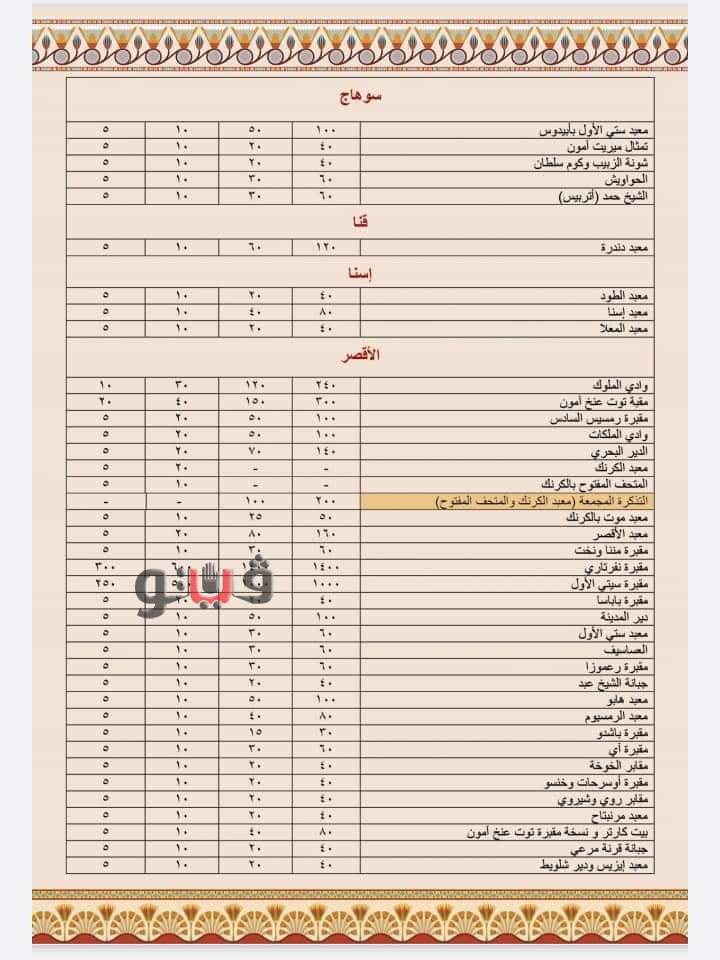 سوهاج
معبد ستي الأول بأبيدوس ١٠٠ ٥٠ ١٠ ٥
تمثال ميريت آمون ٤٠ ٢٠ ١٠ ٥
شونة الزبيب وكوم سلطان ٤٠ ٢٠ ١٠ ٥
الحواويش ٦٠ ٣٠ ١٠ ٥
الشيخ حمد (أتربيس) ٦٠ ٣٠ ١٠ ٥
قنا
معبد دندرة ١٢٠ ٦٠ ١٠ ٥
إسنا
معبد الطود ٤٠ ٢٠ ١٠ ٥
معبد إسنا ٨٠ ٤٠ ١٠ ٥
معبد المعلا ٤٠ ٢٠ ١٠ ٥
الأقصر
وادي الملوك ٢٤٠ ١٢٠ ٣٠ ١٠
مقبة توت عنخ أمون ٣٠٠ ١٥٠ ٤٠ ٢٠
مقبرة رمسيس السادس ١٠٠ ٥٠ ٢٠ ٥
وادي الملكات ١٠٠ ٥٠ ٢٠ ٥
الدير البحري ١٤٠ ٧٠ ٢٠ ٥
معبد الكرنك - - ٢٠ ٥
المتحف المفتوح بالكرنك - - ١٠ ٥
التذكرة المجمعة (معبد الكرنك والمتحف المفتوح) ٢٠٠ ١٠٠ - -
معبد موت بالكرنك ٥٠ ٢٥ ١٠ ٥
معبد الأقصر ١٦٠ ٨٠ ٢٠ ٥
مقبرة مننا ونخت ٦٠ ٣٠ ١٠ ٥
مقبرة نفرتاري ١٤٠٠ ٣٠٠
مقبرة سيتي الأول ١٠٠٠ ٢٥٠
مقبرة باباسا ٤٠ ٥
دير المدينة ١٠٠ ٥٠ ١٠ ٥
معبد ستي الأول ٦٠ ٣٠ ١٠ ٥
العساسيف ٦٠ ٣٠ ١٠ ٥
مقبرة رعموزا ٦٠ ٣٠ ١٠ ٥
جبانة الشيخ عبد ٤٠ ٢٠ ١٠ ٥
معبد هابو ١٠٠ ٥٠ ١٠ ٥
معبد الرمسيوم ٨٠ ٤٠ ١٠ ٥
مقبرة باشدو ٣٠ ١٥ ١٠ ٥
مقبرة آي ٦٠ ٣٠ ١٠ ٥
مقابر الخوخة ٤٠ ٢٠ ١٠ ٥
مقبرة أوسرحات وخنسو ٤٠ ٢٠ ١٠ ٥
مقابر روي وشيروي ٤٠ ٢٠ ١٠ ٥
معبد مرنبتاح ٤٠ ٢٠ ١٠ ٥
بيت كارتر و نسخة مقبرة توت عنخ أمون ٨٠ ٤٠ ١٠ ٥
جبانة قرنة مرعي ٤٠ ٢٠ ١٠ ٥
معبد إيزيس ودير شلويط ٤٠ ٢٠ ١٠ ٥
ڤيتو